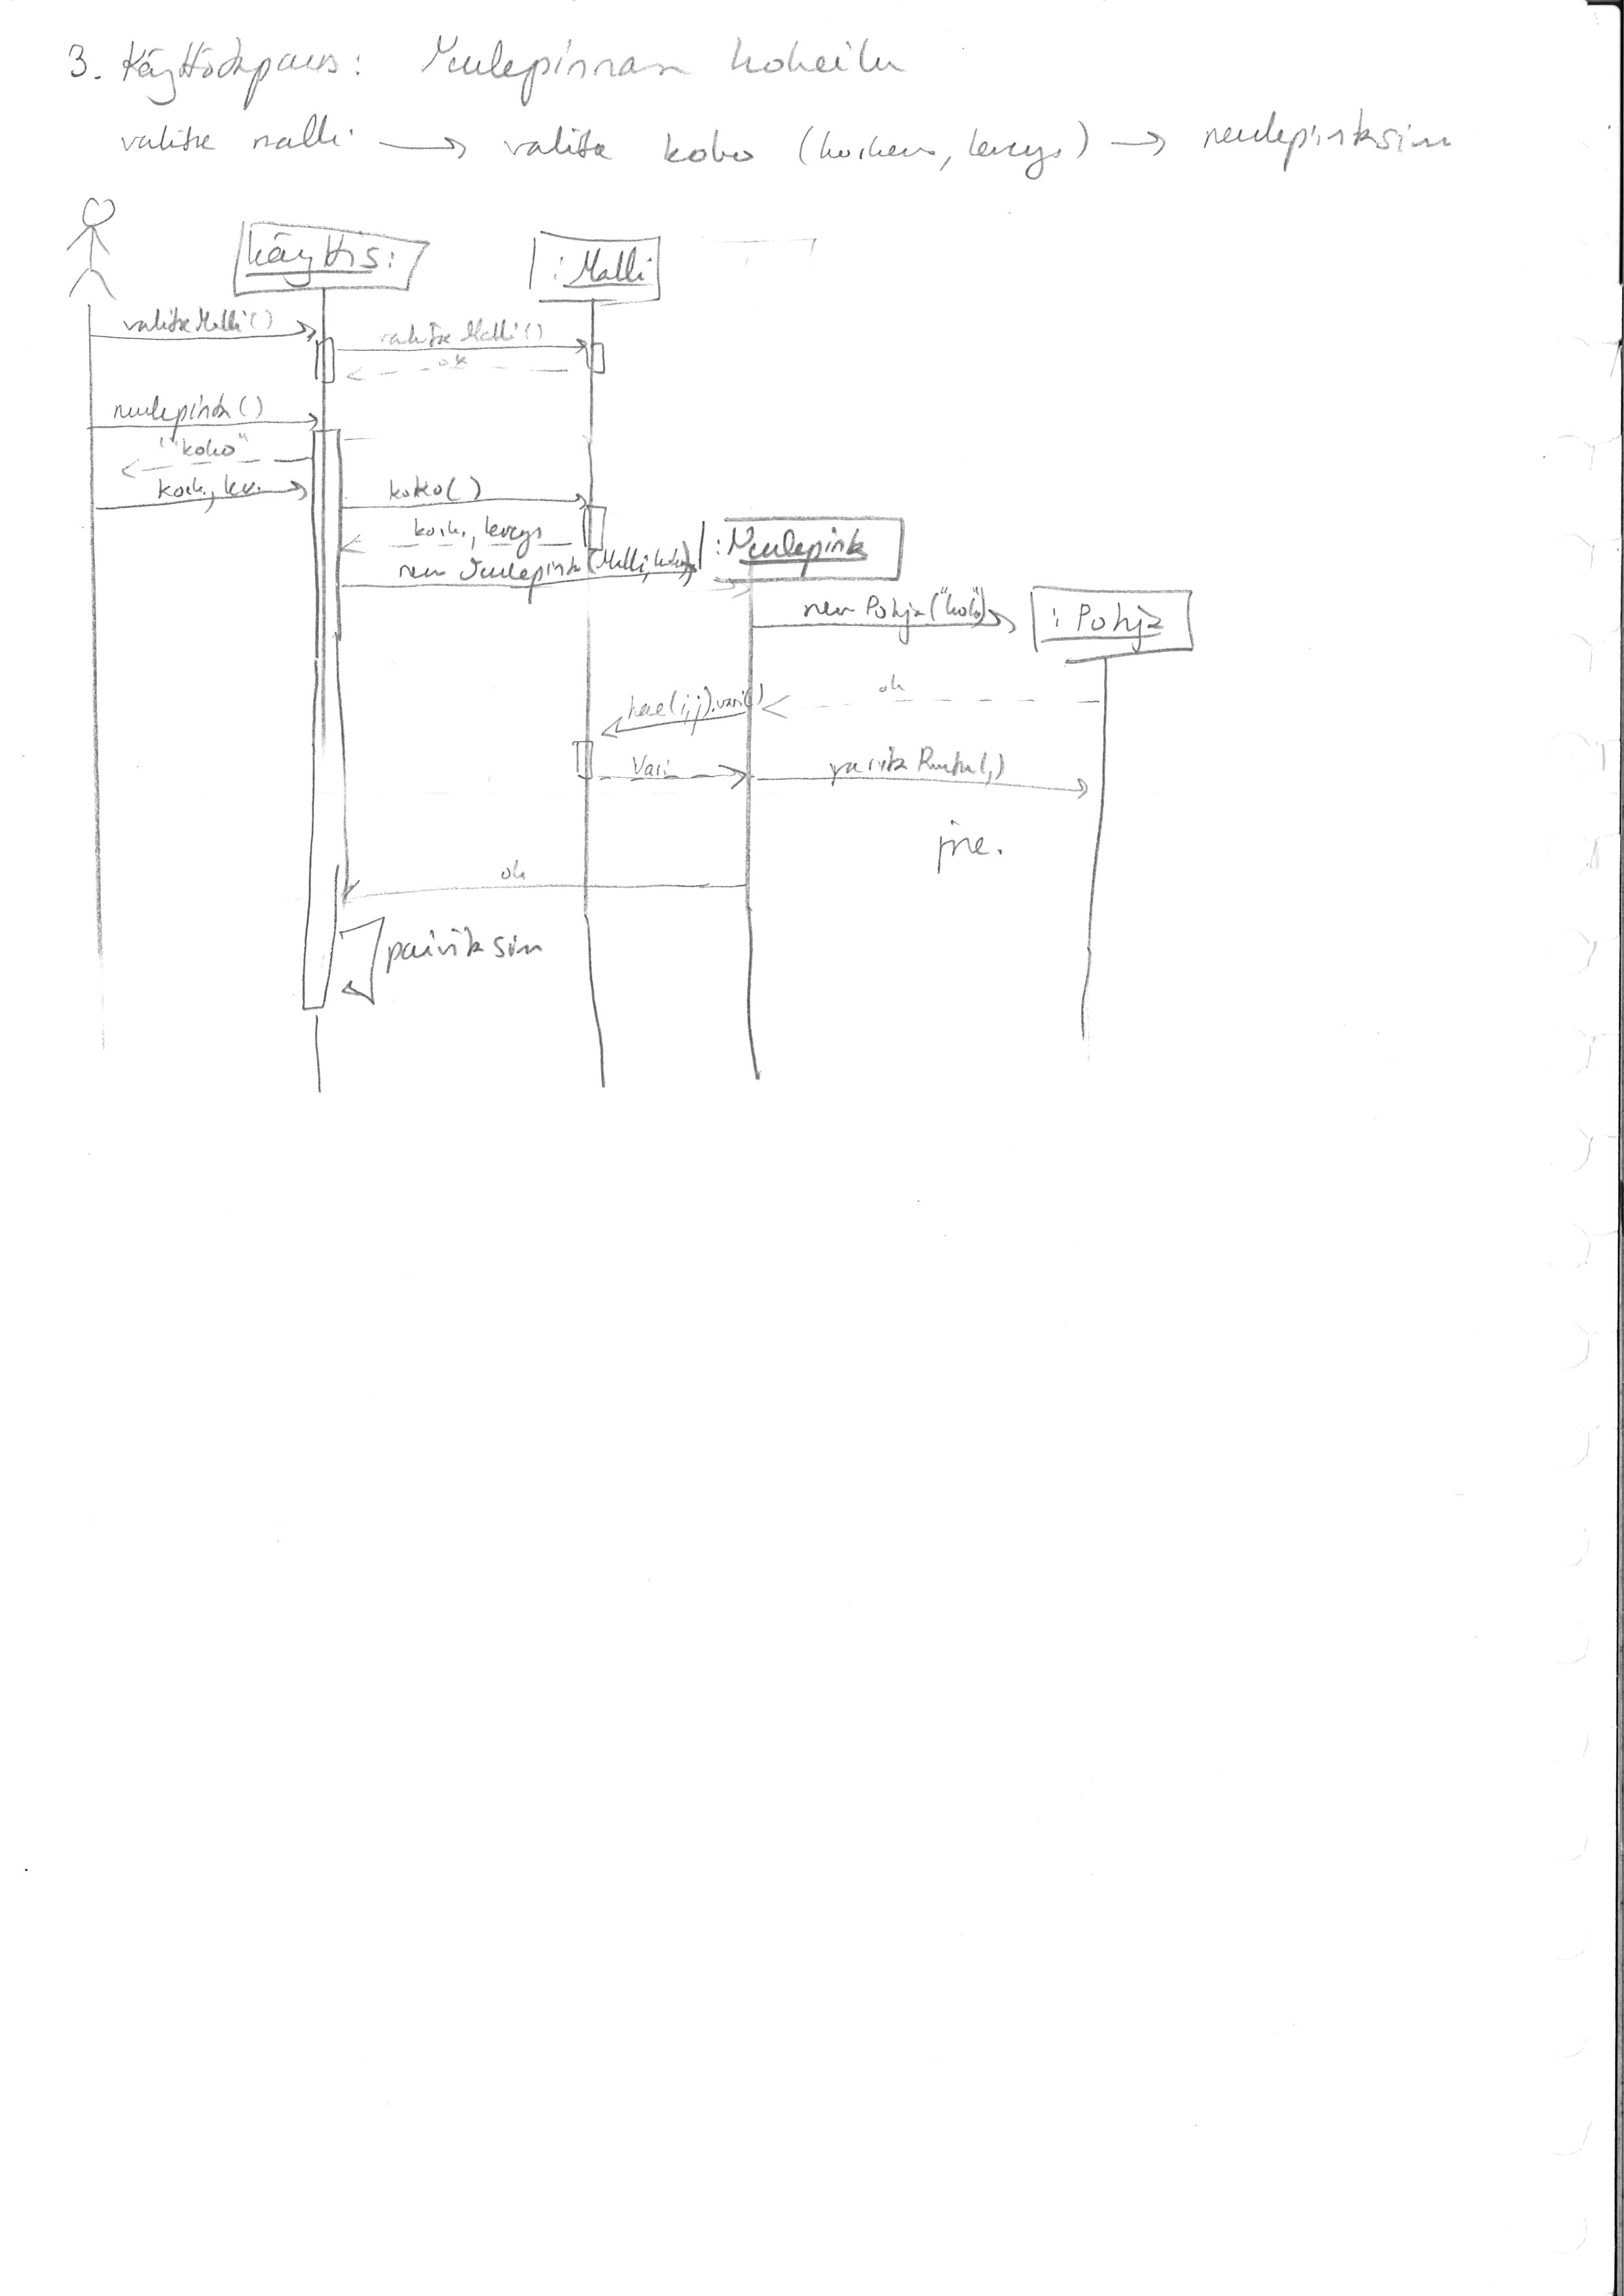 3. Käyttötapaus: Neulepinnan kokeilu
valitse malli → valitse koko (korkeus, leveys) → neulepintasim
käyttis:
:Malli
valitseMalli()
valitseMalli()
ok
neulepinta()
"koko"
kork., lev.
koko()
kork., leveys
:Neulepinta
new Neulepinta(Malli, koko)
new Pohja("koko")
:Pohja
ok
hae(i,j).vari()
Vari
varitaRuutu(,)
jne.
ok